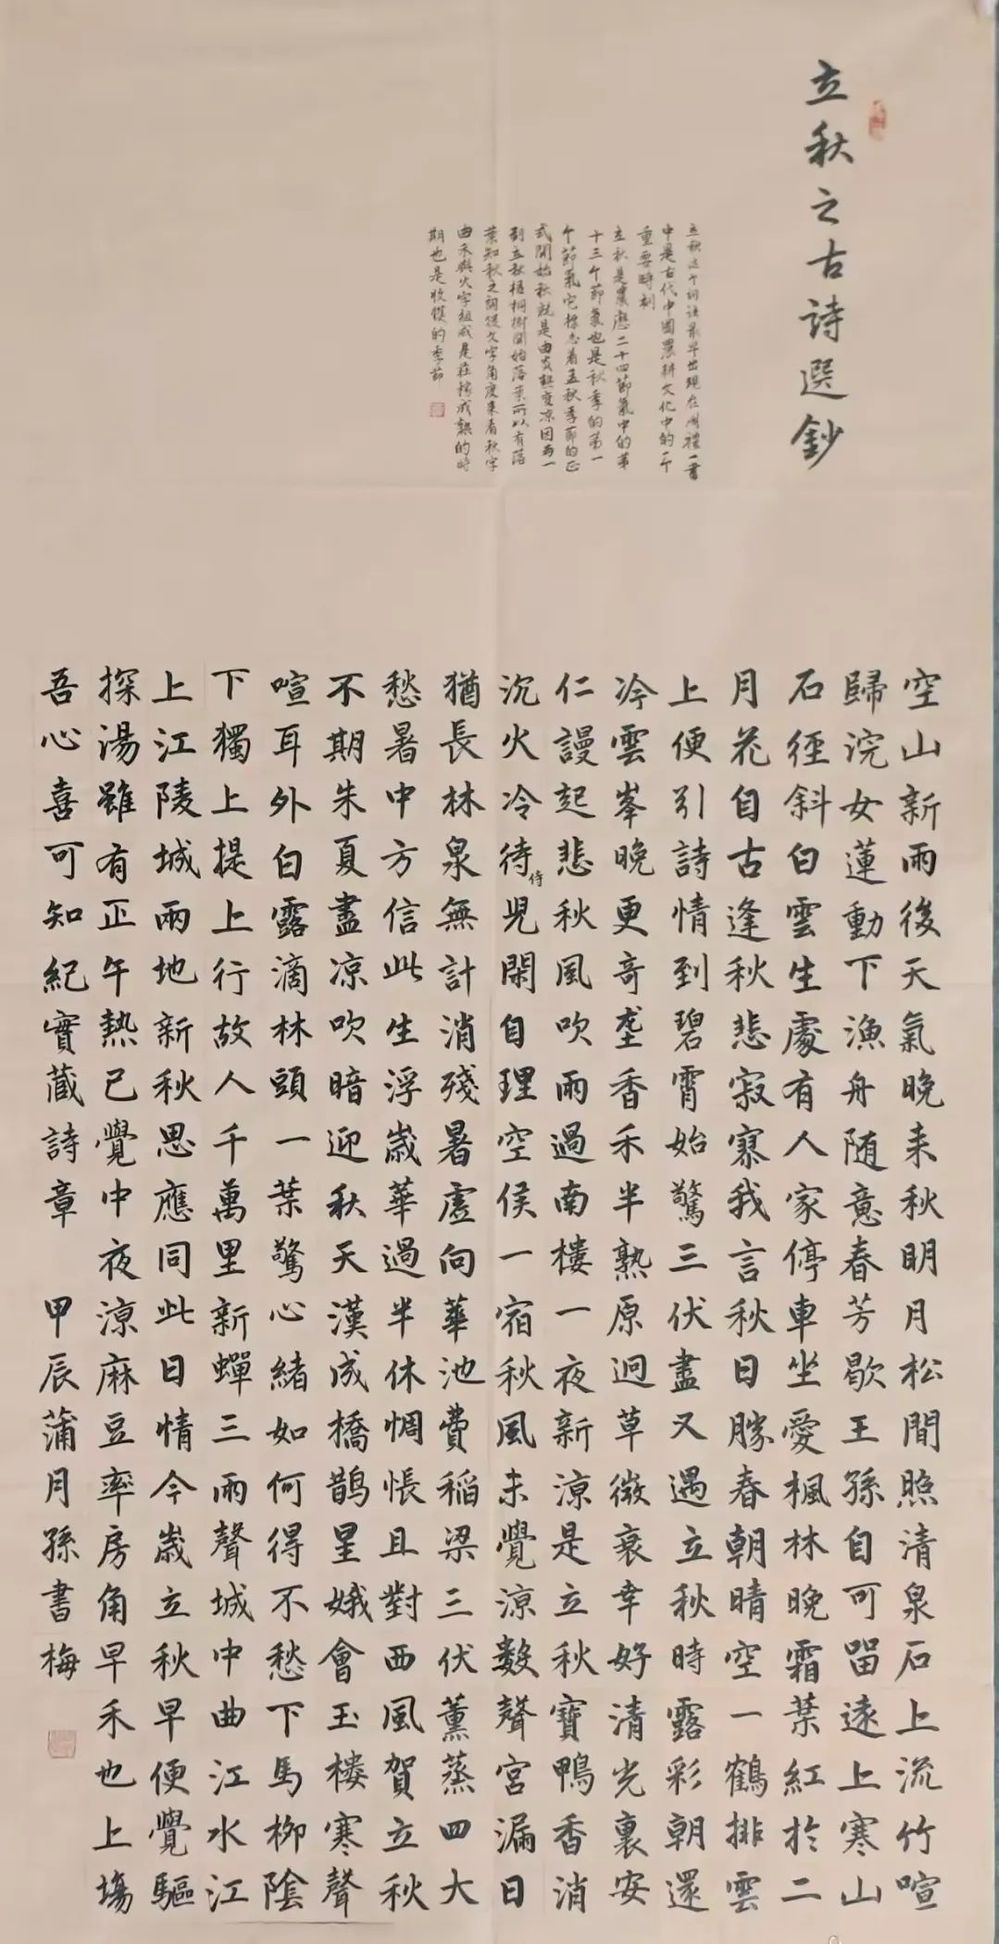 立秋之古詩選鈔
立秋這个詞語最早出現在周禮一書
中是古代中國農耕文化中的一个
重要時刻
立秋是農曆二十四節氣中的第
十三个節氣也是秋季的第一
个節氣它標志着孟秋季節的正
式開始秋就是由炎熱變凉因而一
到立秋梧桐樹開始落葉所以有落
葉知秋之詞從文字角度来看秋字
由禾與火字組成是莊稼成熟的時
期也是收穫的季節
空山新雨後天氣晚来秋明月松間照清泉石上流竹喧
歸浣女蓮動下漁舟随意春芳歇王孫自可留遠上寒山
石徑斜白雲生處有人家停車坐愛楓林晚霜葉紅於二
月花自古逢秋悲寂寥我言秋日勝春朝晴空一鶴排雲
上便引詩情到碧霄始驚三伏盡又遇立秋時露彩朝還
冷雲峯晚更奇垄香禾半熟原迥草微衰幸好清光裏安
仁謾起悲秋風吹雨過南樓一夜新涼是立秋寶鴨香消
沉火冷待侍児閑自理空侯一宿秋風未覺涼數聲宮漏日
猶長林泉無計消殘暑虛向華池費稻梁三伏薰蒸四大
愁暑中方信此生浮歲華過半休惆悵且對西風賀立秋
不期朱夏盡凉吹暗迎秋天漢成橋鵲星娥會玉樓寒聲
喧耳外白露滴林頭一葉驚心緒如何得不愁下馬柳陰
下獨上提上行故人千萬里新蟬三雨聲城中曲江水江
上江陵城兩地新秋思應同此日情今歲立秋早便覺驅
探湯雖有正午熱已覺中夜涼麻豆率房角早禾也上塲
吾心喜可知紀實藏詩章 甲辰蒲月孫書梅